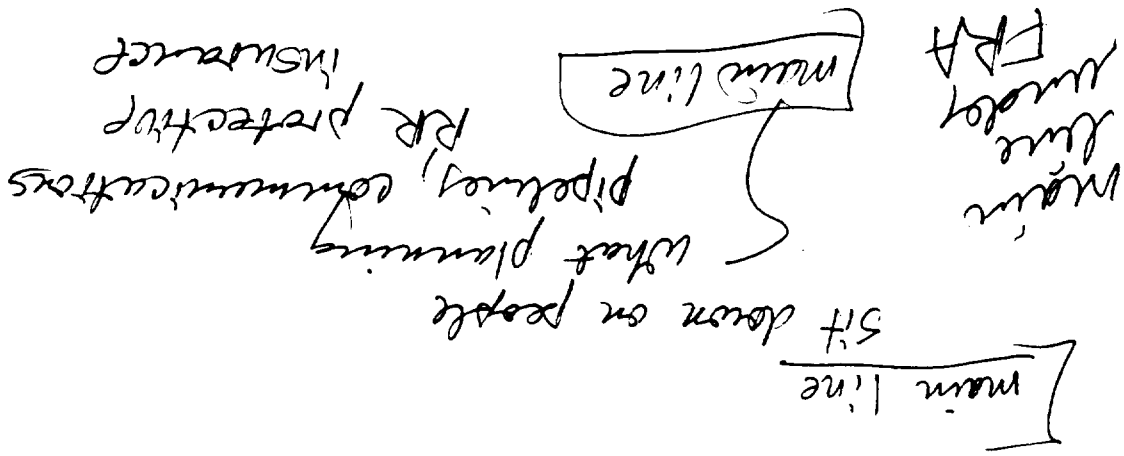 main line
sit down on people
what planning
pipelines, communications
RR protective
insurance
main line
main
line
under
FRA